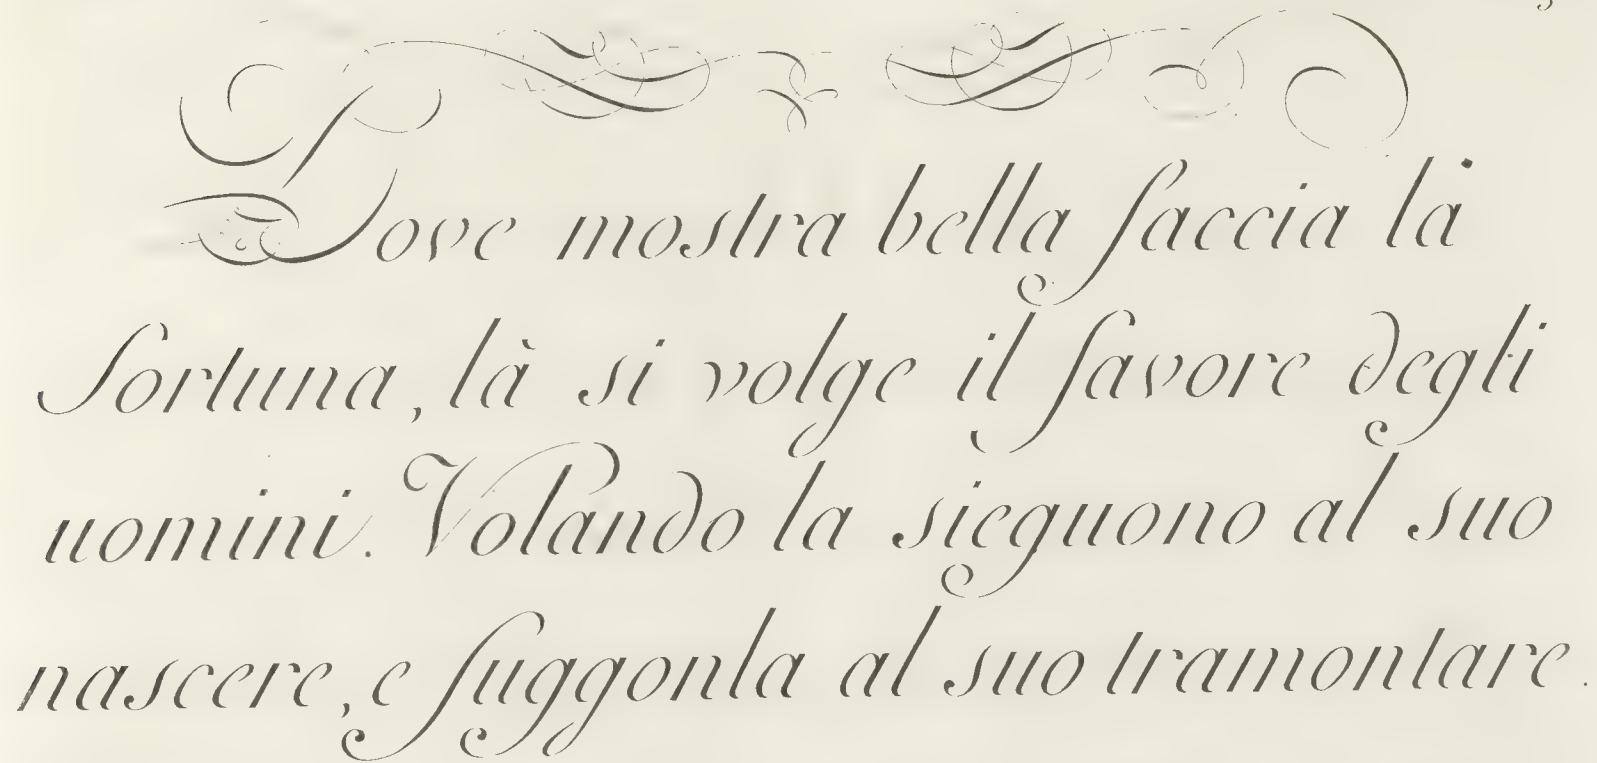 Dove mostra bella faccia la
fortuna, là si volge il favore degli
uomini. Volando la sieguono al suo
nascere, e fuggonla al suo tramontare.